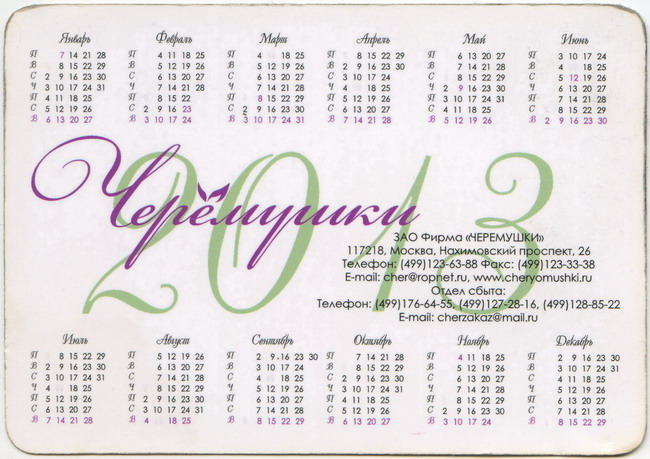 Январь
П 7 14 21 28
В 8 15 22 29
С 2 9 16 23 30
Ч 3 10 17 24 31
П 4 11 18 25
С 5 12 19 26
В 6 13 20 27
Февраль
П 4 11 18 25
В 5 12 19 26
С 6 13 20 27
Ч 7 14 21 28
П 8 15 22
С 2 9 16 23
В 3 10 17 24
Март
П 4 18 25
В 5 12 19 26
С 6 13 20 27
Ч 7 14 21 28
П 8 15 22 29
С 2 9 16 23 30
В 3 10 17 24 31
Апрель
П 8 15 22 29
В 2 9 16 23 30
С 3 10 17 24
Ч 4 11 18 25
П 5 12 19 26
С 6 13 20 27
В 7 14 21 28
Май
П 6 13 20 27
В 7 14 21 28
С 8 15 22 29
Ч 2 9 16 23 30
П 3 10 17 24 31
С 4 11 18 25
В 5 12 19 26
Июнь
П 3 10 17 24
В 4 18 25
С 5 12 19 26
Ч 6 13 20 27
П 7 14 21 28
С 8 15 22 29
В 2 9 16 23 30
2013
Черёмушки
ЗАО Фирма «ЧЕРЕМУШКИ»
117218, Москва, Нахимовский проспект, 26
Телефон: (499)123-63-88 Факс: (499)123-33-38
E-mail: cher@ropnet.ru, www.cheryomushki.ru
Отдел сбыта:
Телефон: (499)176-64-55, (499)127-28-16, (499)128-85-22
E-mail: cherzakaz@mail.ru
Июль
П 8 15 22 29
В 2 9 16 23 30
С 3 10 17 24 31
Ч 4 11 18 25
П 5 12 19 26
С 6 13 20 27
В 7 14 21 28
Август
П 5 12 19 26
В 6 13 20 27
С 7 14 21 28
Ч 8 15 22 29
П 2 9 16 23 30
С 3 10 17 24 31
В 4 18 25
Сентябрь
П 2 9 16 23 30
В 3 10 17 24
С 4 18 25
Ч 5 12 19 26
П 6 13 20 27
С 7 14 21 28
В 8 15 22 29
Октябрь
П 7 14 21 28
В 8 15 22 29
С 2 9 16 23 30
Ч 3 10 17 24 31
П 4 11 18 25
С 5 12 19 26
В 6 13 20 27
Ноябрь
П 4 11 18 25
В 5 12 19 26
С 6 13 20 27
Ч 7 14 21 28
П 8 15 22 29
С 2 9 16 23 30
В 3 10 17 24
Декабрь
П 2 9 16 23 30
В 3 10 17 24 31
С 4 11 18 25
Ч 5 12 19 26
П 6 13 20 27
С 7 14 21 28
В 8 15 22 29